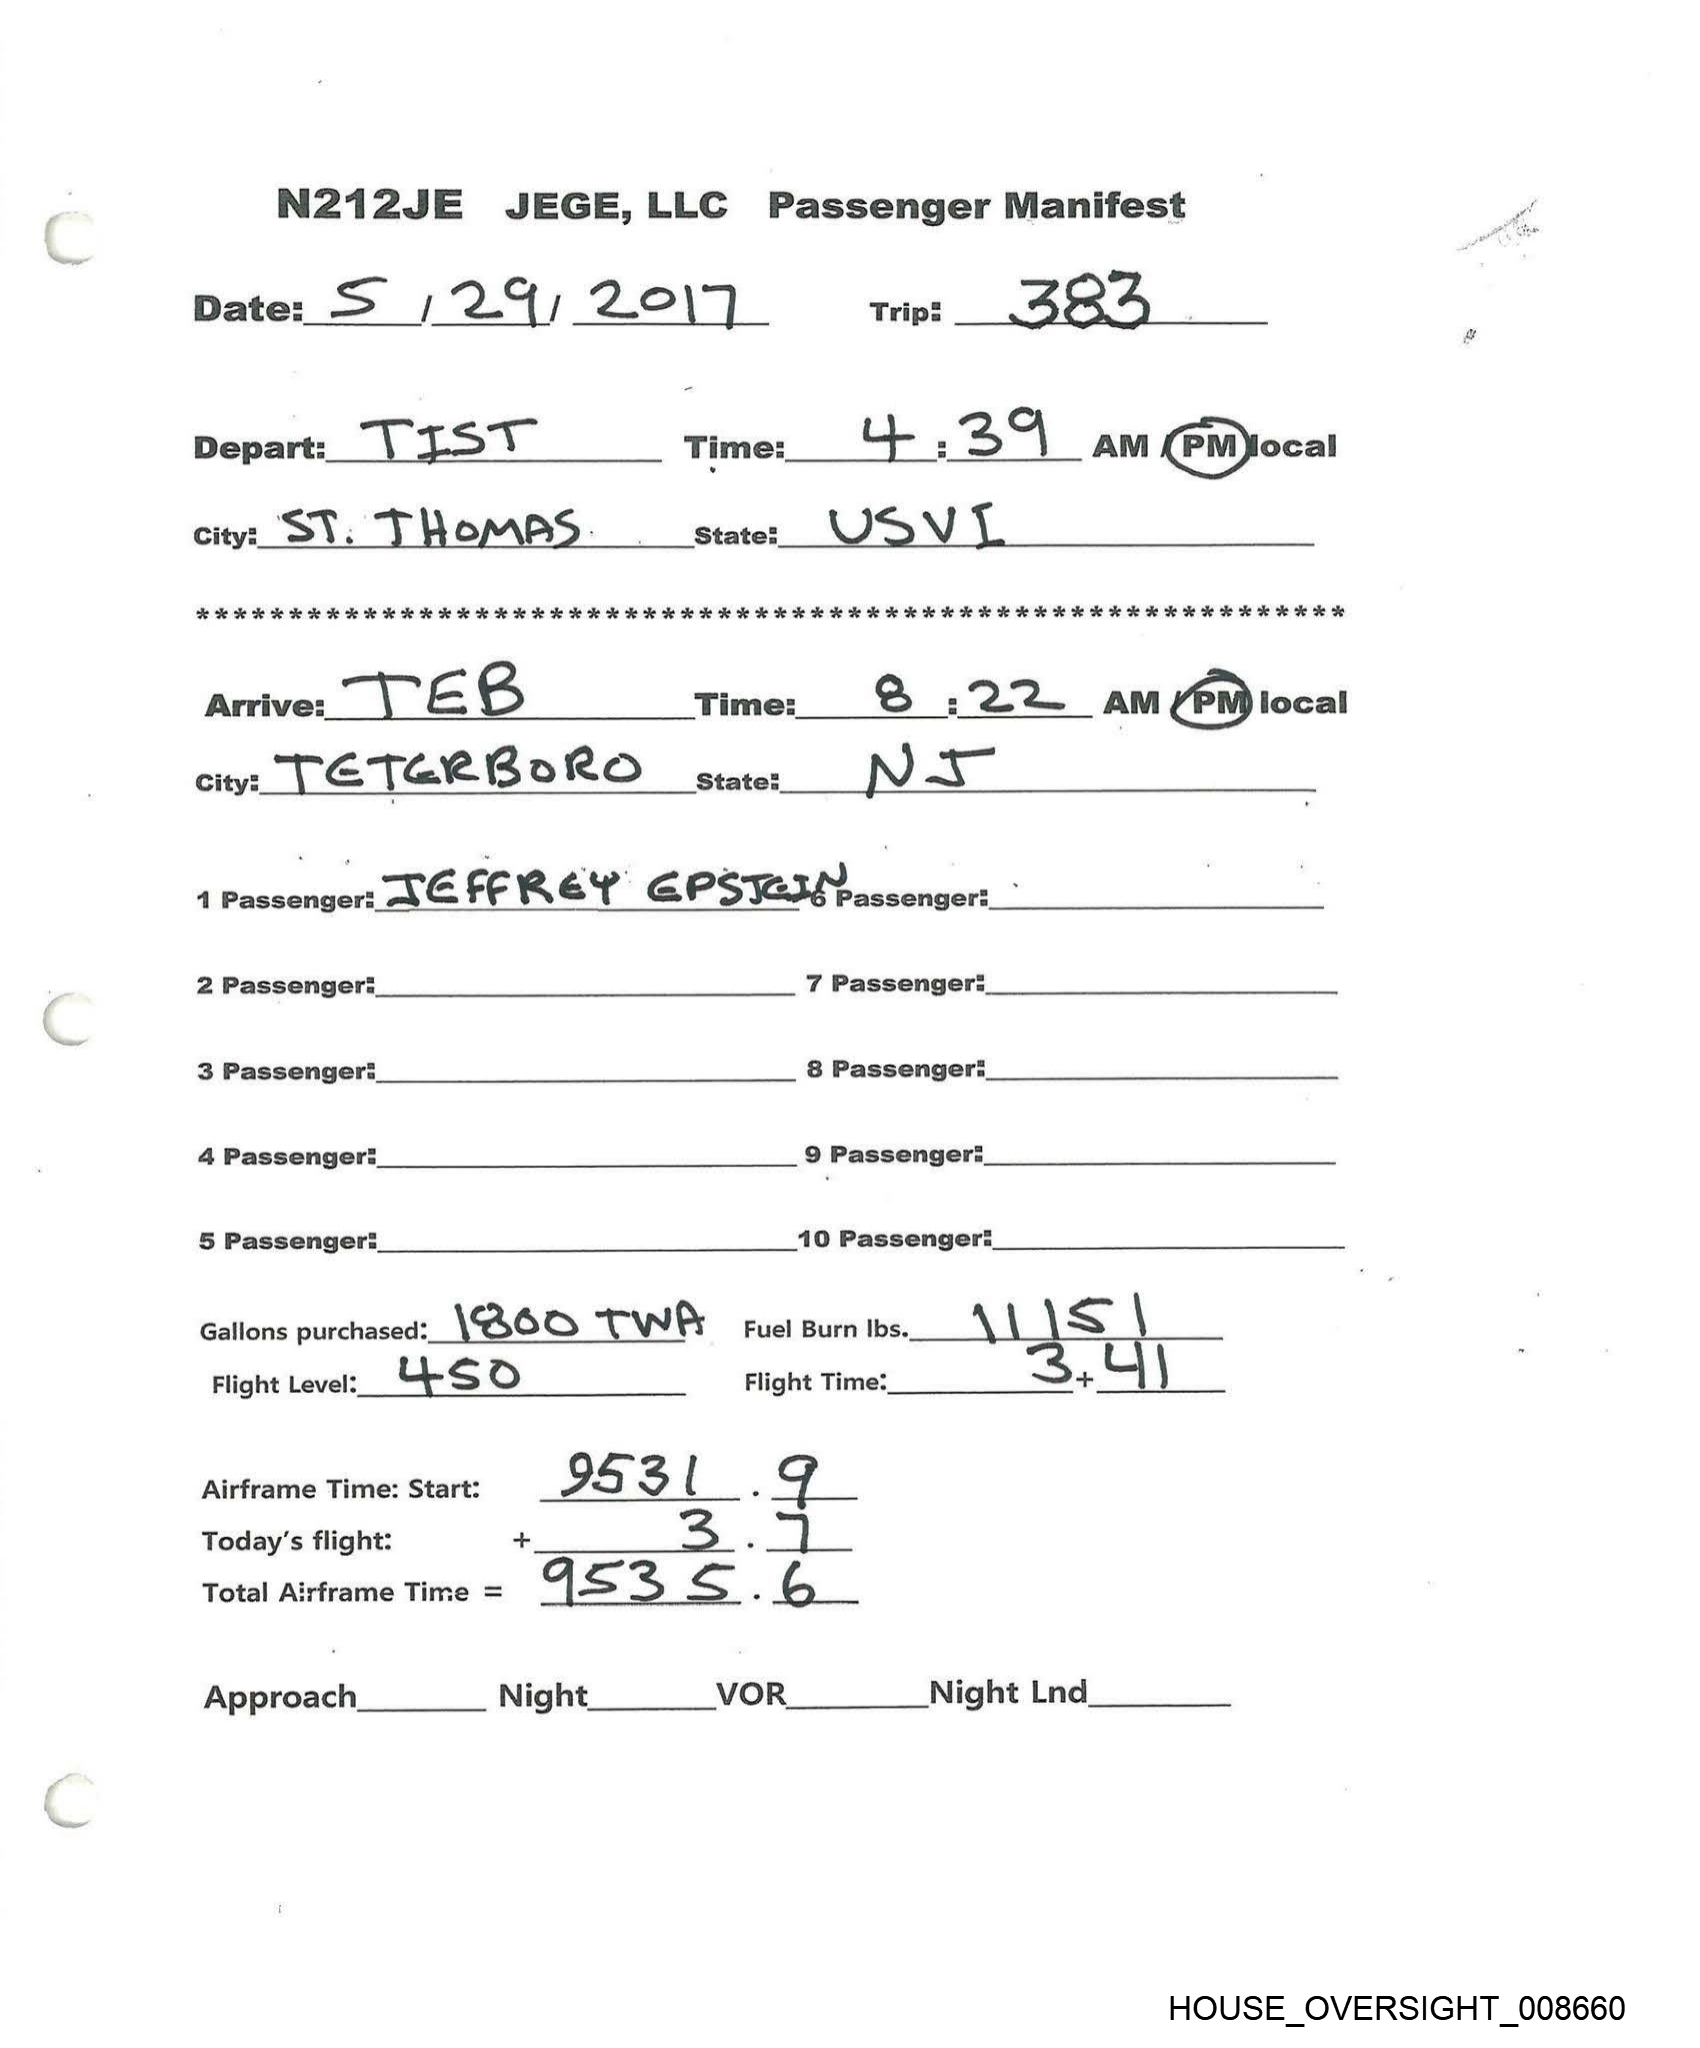 N212JE JEGE, LLC Passenger Manifest
Date: 5 / 29 / 2017 Trip: 383
Depart: TIST Time: 4 : 39 AM / PM local
City: ST. THOMAS State: USVI
**************************************************************
Arrive: TEB Time: 8 : 22 AM / PM local
City: TETERBORO State: NJ
1 Passenger: JEFFREY EPSTEIN 6 Passenger:
2 Passenger: 7 Passenger:
3 Passenger: 8 Passenger:
4 Passenger: 9 Passenger:
5 Passenger: 10 Passenger:
Gallons purchased: 1800 TWA Fuel Burn lbs. 11151
Flight Level: 450 Flight Time: 3 + 41
Airframe Time: Start: 9531 . 9
Today's flight: + 3 . 7
Total Airframe Time = 9535 . 6
Approach Night VOR Night Lnd
HOUSE_OVERSIGHT_008660